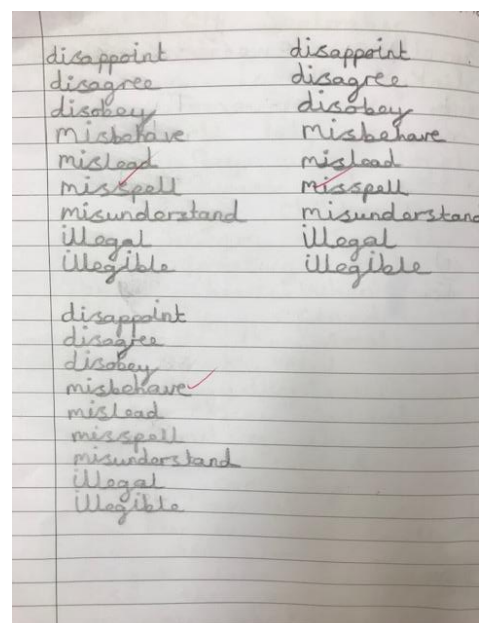 disappoint
disagree
disobey
misbehave
mislead
misspell
misunderstand
illegal
illegible
disappoint
disagree
disobey
misbehave
mislead
misspell
misunderstand
illegal
illegible
disappoint
disagree
disobey
misbehave
mislead
misspell
misunderstand
illegal
illegible